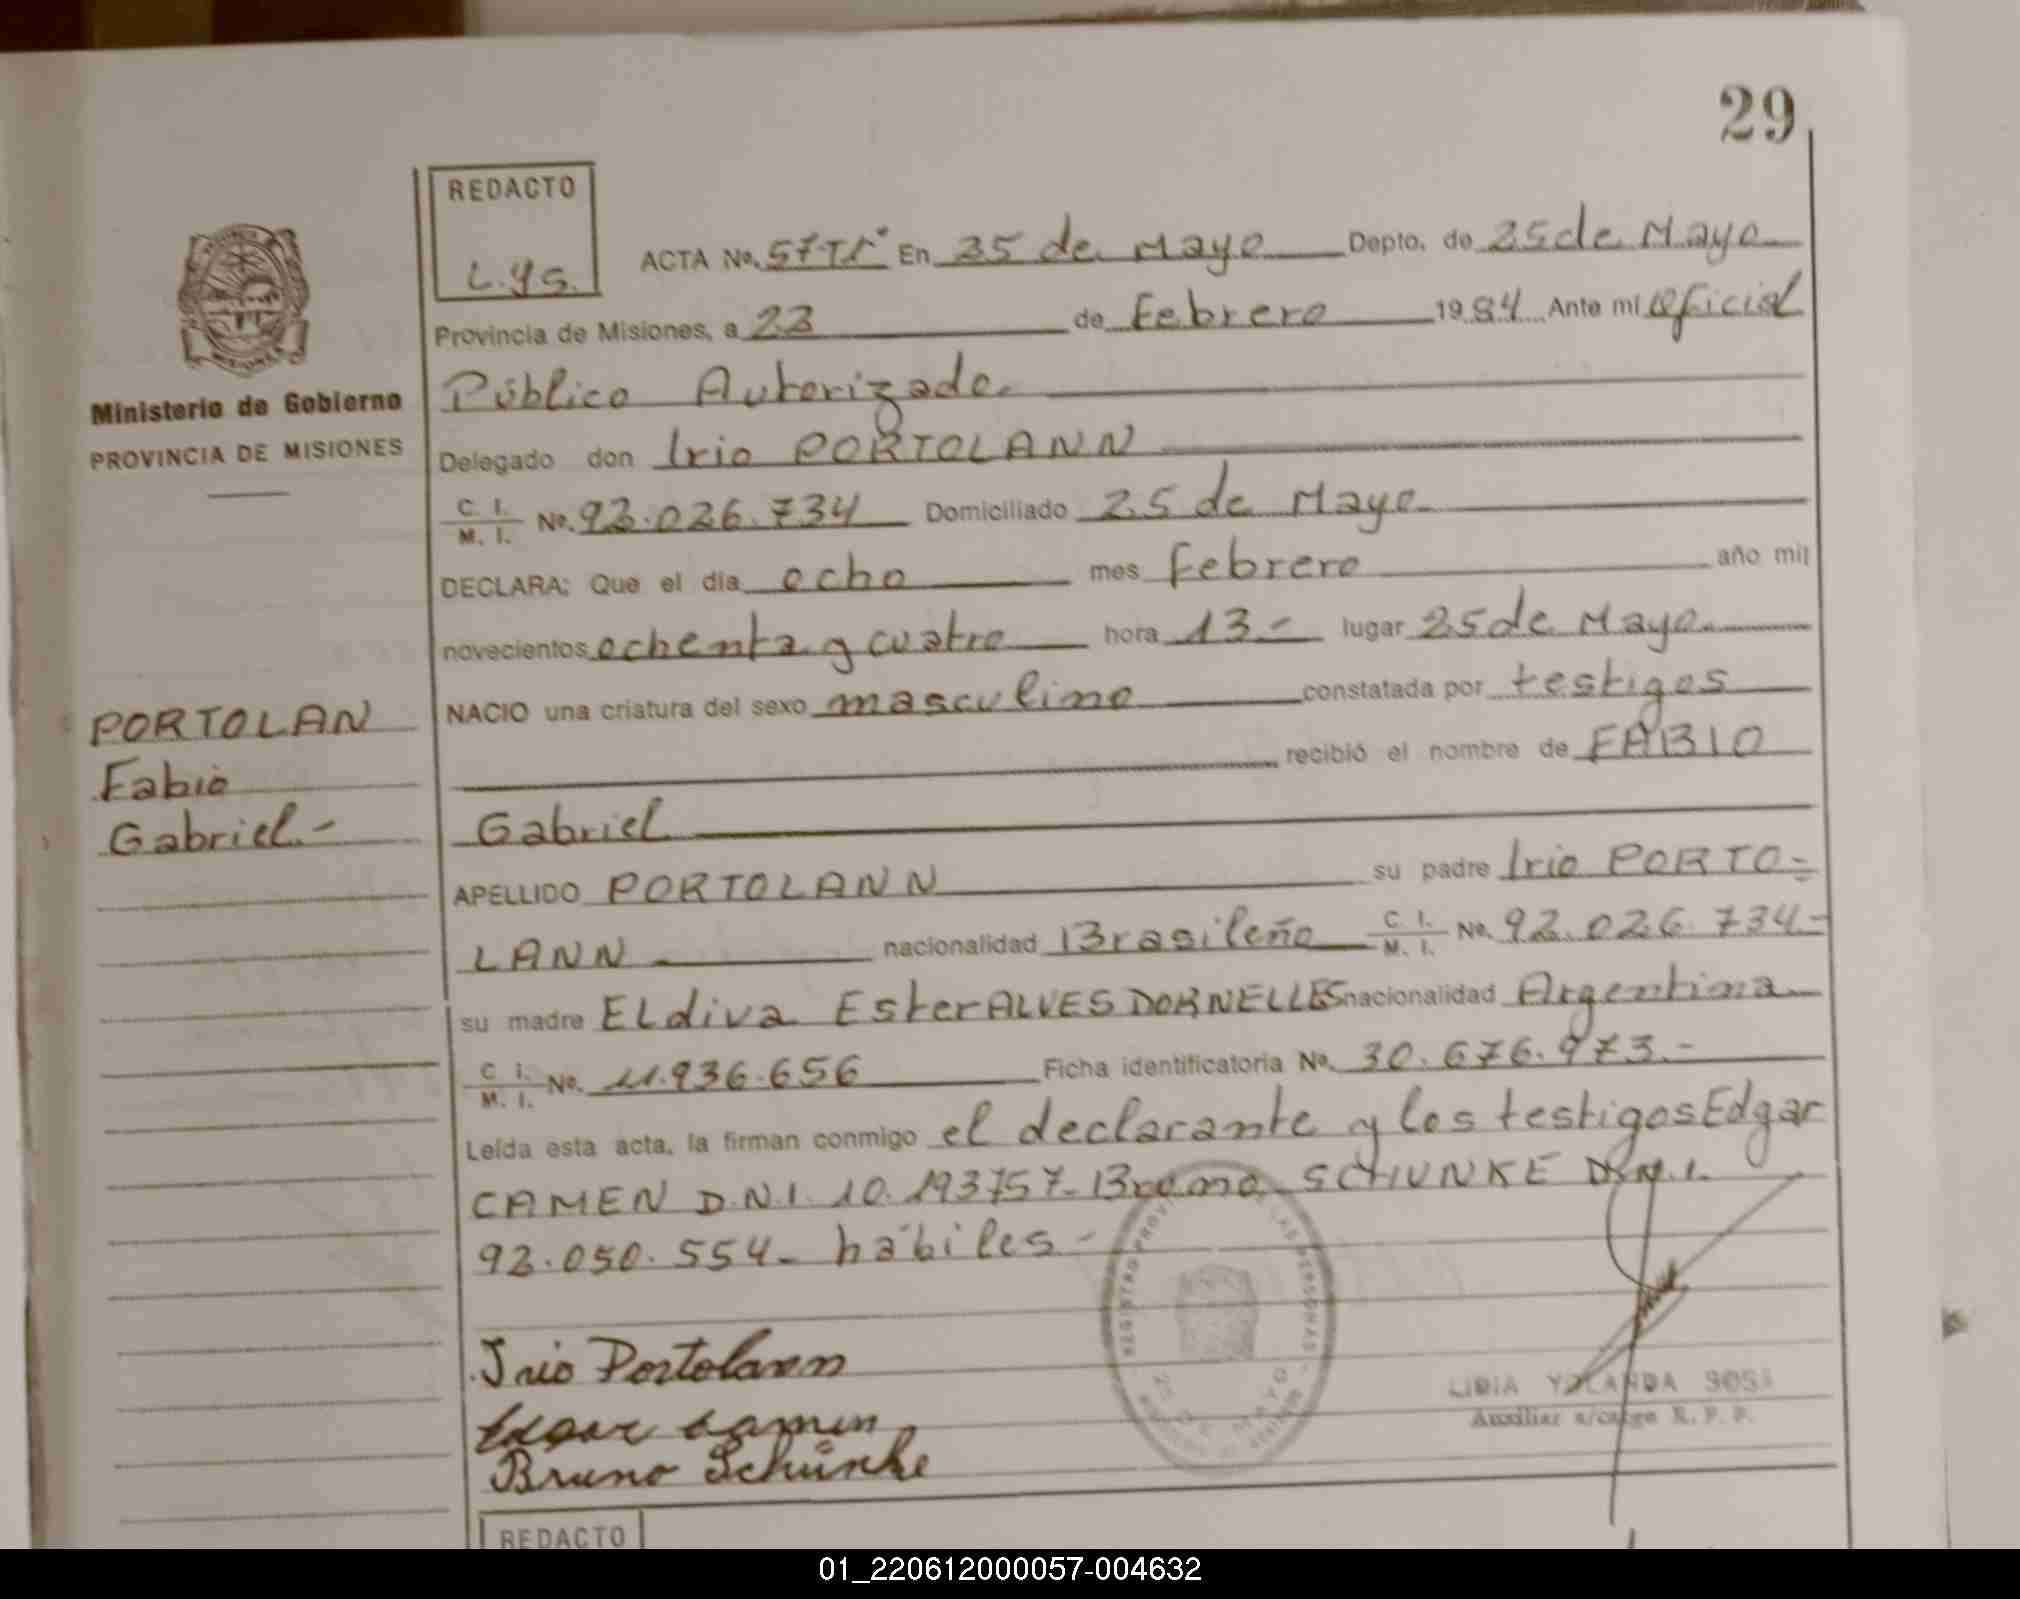 29
REDACTO
L.y.s.
ACTA No. 57 TIº En 25 de Mayo Depto. de 25 de Mayo
Provincia de Misiones, a 23 de Febrero 1984 Ante mi Oficial
Público Autorizado.
Delegado don Irio PORTOLANN
C. I. / M. I. No. 92.026.734 Domiciliado 25 de Mayo
DECLARA: Que el dia ocho mes Febrero año mil
novecientos ochenta y cuatro hora 13.- lugar 25 de Mayo.
NACIO una criatura del sexo masculino constatada por testigos
recibió el nombre de FABIO
Gabriel
APELLIDO PORTOLANN su padre Irio PORTO=
LANN nacionalidad Brasileño C. I. / M. I. No. 92.026.734-
su madre ELdiva Ester ALVES DORNELLES nacionalidad Argentina
C. I. / M. I. No. 11.936.656 Ficha identificatoria No. 30.676.973.-
Leída esta acta, la firman conmigo el declarante y los testigos Edgar
CAMEN D.N.I. 10.193757- Bruno SCHUNKE D.N.I.
92.050.554- hábiles-
Irio Portolann
Edgar Camen
Bruno Schünke
LIDIA YOLANDA SOSA
Auxiliar a/cargo R. P. P.
REGISTRO PROVINCIAL DE LAS PERSONAS
25 DE MAYO
Ministerio de Gobierno
PROVINCIA DE MISIONES
PORTOLAN
Fabio
Gabriel.-
REDACTO
01_220612000057-004632